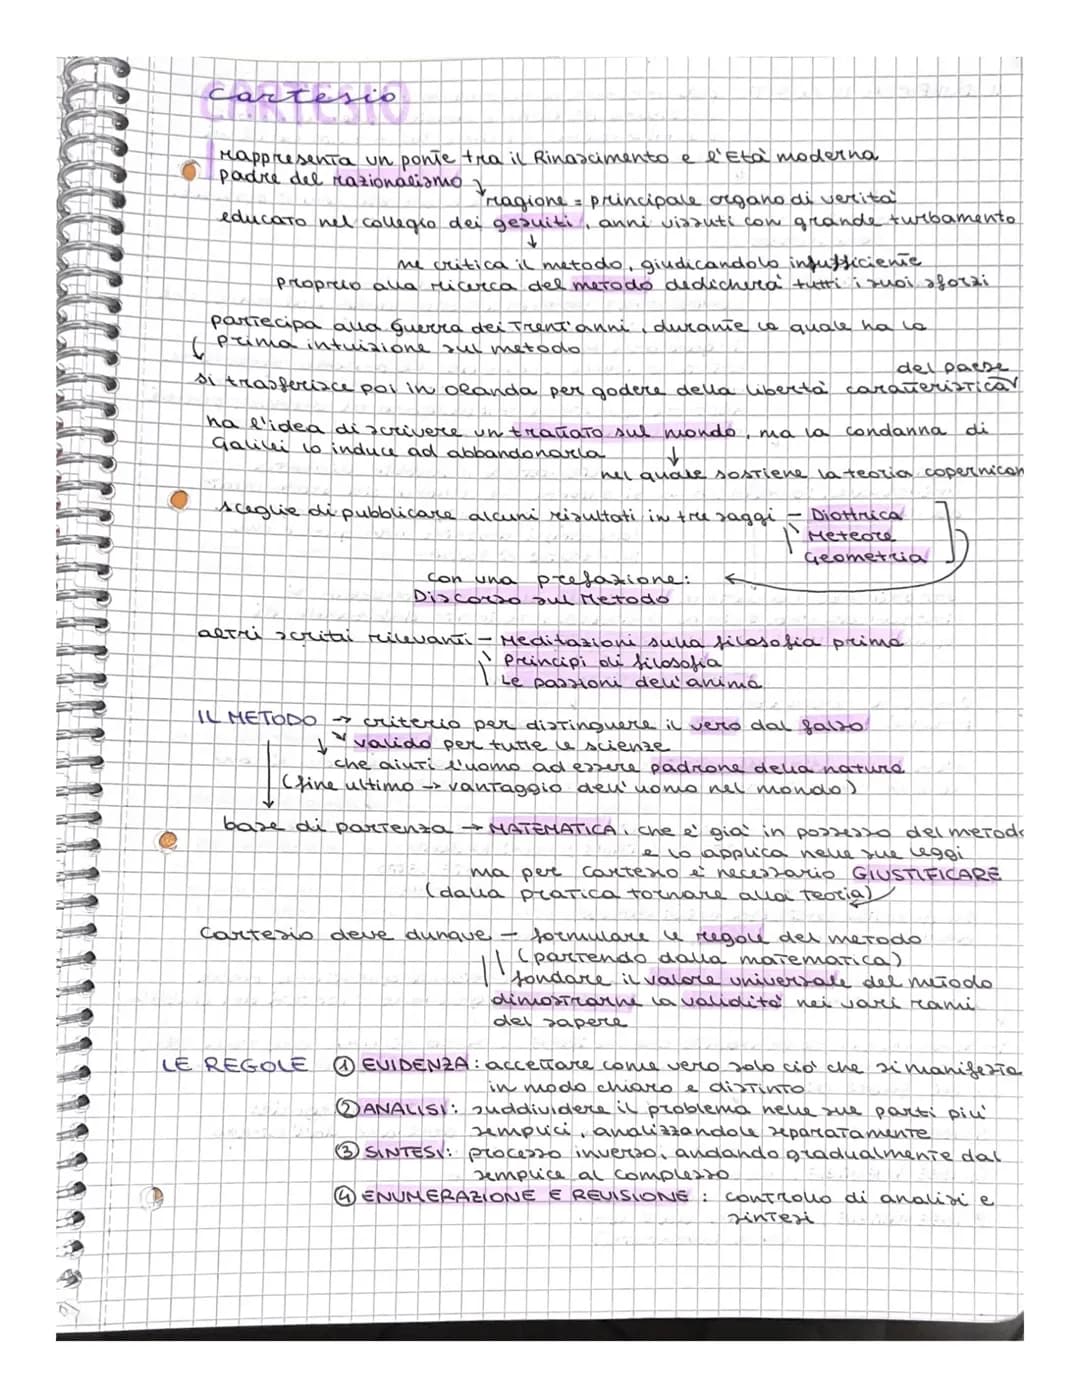 cartesio
CARTESIO
rappresenta un ponte tra il Rinascimento e l'Età moderna
padre del razionalismo
ragione = principale organo di verità
educato nel collegio dei gesuiti, anni vissuti con grande turbamento
↓
ne critica il metodo, giudicandolo insufficiente
proprio alla ricerca del metodo dedicherà tutti i suoi sforzi
partecipa alla guerra dei Trent'anni, durante la quale ha la
prima intuizione sul metodo
del paese
si trasferisce poi in Olanda per godere della libertà caratteristica
ha l'idea di scrivere un trattato sul mondo, ma la condanna di
Galilei lo induce ad abbandonarla ↓
nel quale sostiene la teoria copernican
sceglie di pubblicare alcuni risultati in tre saggi - Diottrica
Meteore
Geometria
con una prefazione: ←
Discorso sul Metodo
altri scritti rilevanti - Meditazioni sulla filosofia prima
Principi di filosofia
Le passioni dell'anima
IL METODO → criterio per distinguere il vero dal falso
valido per tutte le scienze
che aiuti l'uomo ad essere padrone della natura
(fine ultimo → vantaggio dell'uomo nel mondo)
base di partenza → MATEMATICA, che è già in possesso del metodo
e lo applica nelle sue leggi
ma per Cartesio è necessario GIUSTIFICARE
(dalla pratica tornare alla teoria)
Cartesio deve dunque - formulare le regole del metodo
(partendo dalla matematica)
fondare il valore universale del metodo
dimostrarne la validità nei vari rami
del sapere
LE REGOLE ① EVIDENZA: accettare come vero solo ciò che si manifesta
in modo chiaro e distinto
② ANALISI: suddividere il problema nelle sue parti più
semplici, analizzandole separatamente
③ SINTESI: processo inverso, andando gradualmente dal
semplice al complesso
④ ENUMERAZIONE E REVISIONE: controllo di analisi e
sintesi